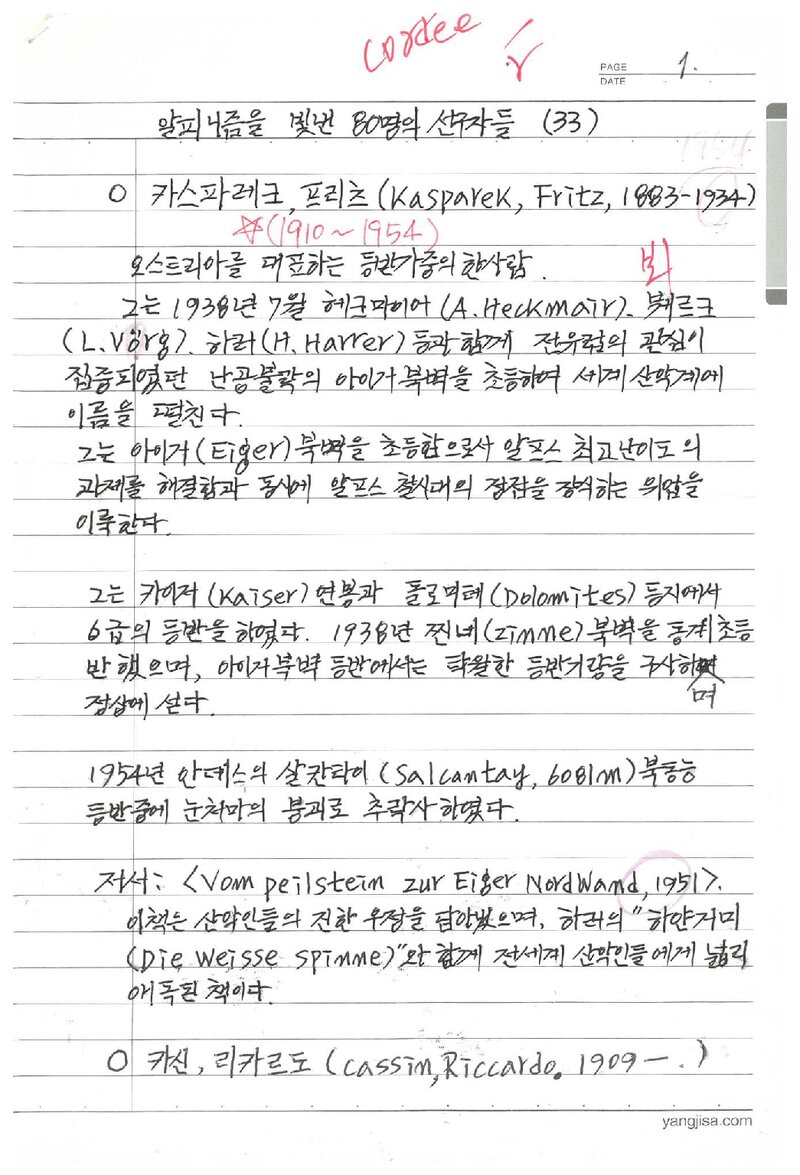 cordee
PAGE 1.
DATE
알피니즘을 빛낸 80명의 선구자들 (33)
1954
O 카스파레크, 프리츠 (Kasparek, Fritz, 1883-1934)
☆(1910~1954)
오스트리아를 대표하는 등반가중의 한사람.
뵈
그는 1938년 7월 헤크마이어 (A. Heckmair). 붸르크
(L. Vörg). 하러 (H. Harrer) 등과 함께 전유럽의 관심이
집중되였판 난공불락의 아이거 북벽을 초등하여 세계 산악계에
이름을 떨친다.
그는 아이거 (Eiger) 북벽을 초등함으로서 알프스 최고난이도의
과제를 해결함과 동시에 알프스 철시대의 정점을 장식하는 위업을
이룩한다.
그는 카이저 (Kaiser) 연봉과 돌로미테 (Dolomites) 등지에서
6급의 등반을 하였다. 1938년 찐네 (zinne) 북벽을 동계초등
반했으며, 아이거북벽 등반에서는 탁월한 등반기량을 구사하
며
정상에 선다.
1954년 안데스의 살칸타이 (Salcantay, 6081m) 북동능
등반중에 눈처마의 붕괴로 추락사하였다.
저서: <Vom peilstein zur Eiger NordWand, 1951>.
이책은 산악인들의 진한 우정을 담았으며, 하러의 "하얀거미
(Die weisse spinne)"와 함께 전세계 산악인들에게 널리
애독된 책이다.
O 카신, 리카르도 (cassin, Riccardo. 1909 - .)
yangjisa.com